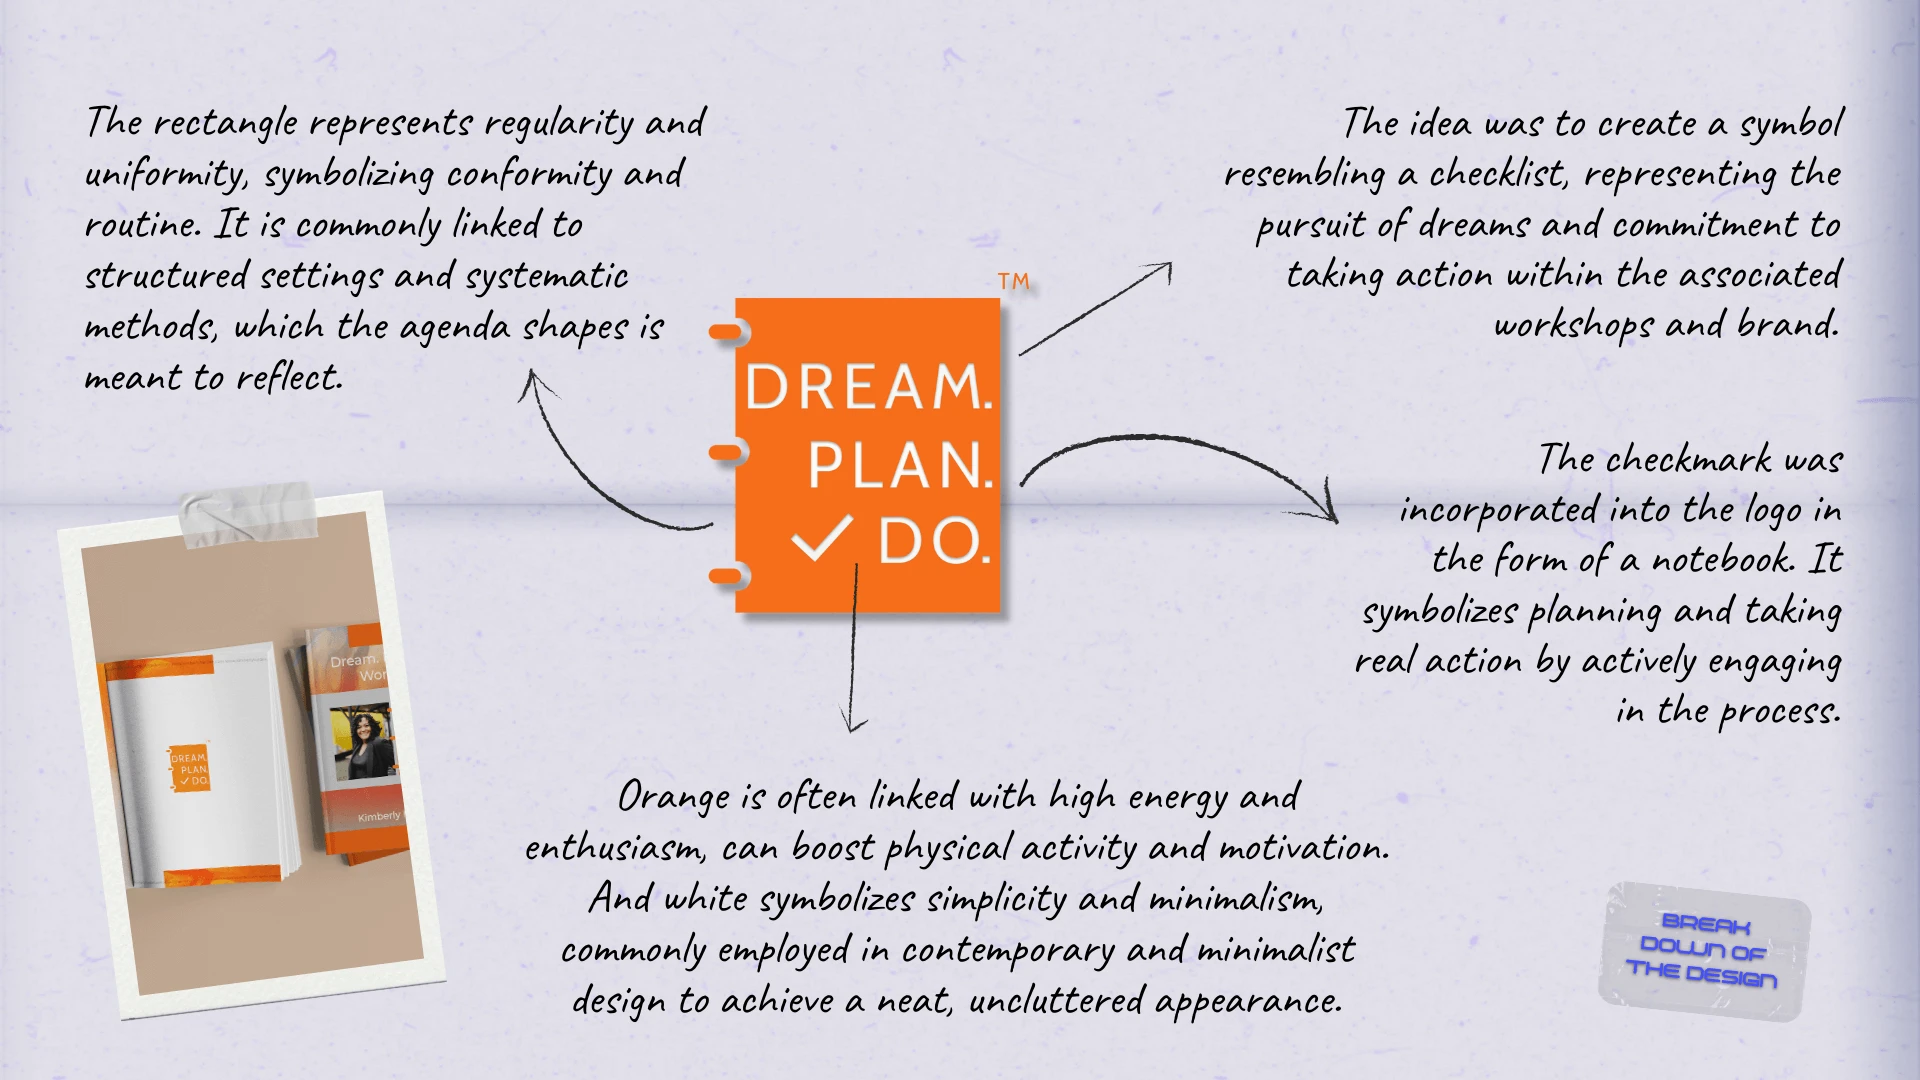 The rectangle represents regularity and
uniformity, symbolizing conformity and
routine. It is commonly linked to
structured settings and systematic
methods, which the agenda shapes is
meant to reflect.
The idea was to create a symbol
resembling a checklist, representing the
pursuit of dreams and commitment to
taking action within the associated
workshops and brand.
TM
DREAM.
PLAN.
✓ DO.
The checkmark was
incorporated into the logo in
the form of a notebook. It
symbolizes planning and taking
real action by actively engaging
in the process.
DREAM.
PLAN.
✓ DO.
Dream.
Wor
Kimberly
Orange is often linked with high energy and
enthusiasm, can boost physical activity and motivation.
And white symbolizes simplicity and minimalism,
commonly employed in contemporary and minimalist
design to achieve a neat, uncluttered appearance.
BREAK
DOWN OF
THE DESIGN